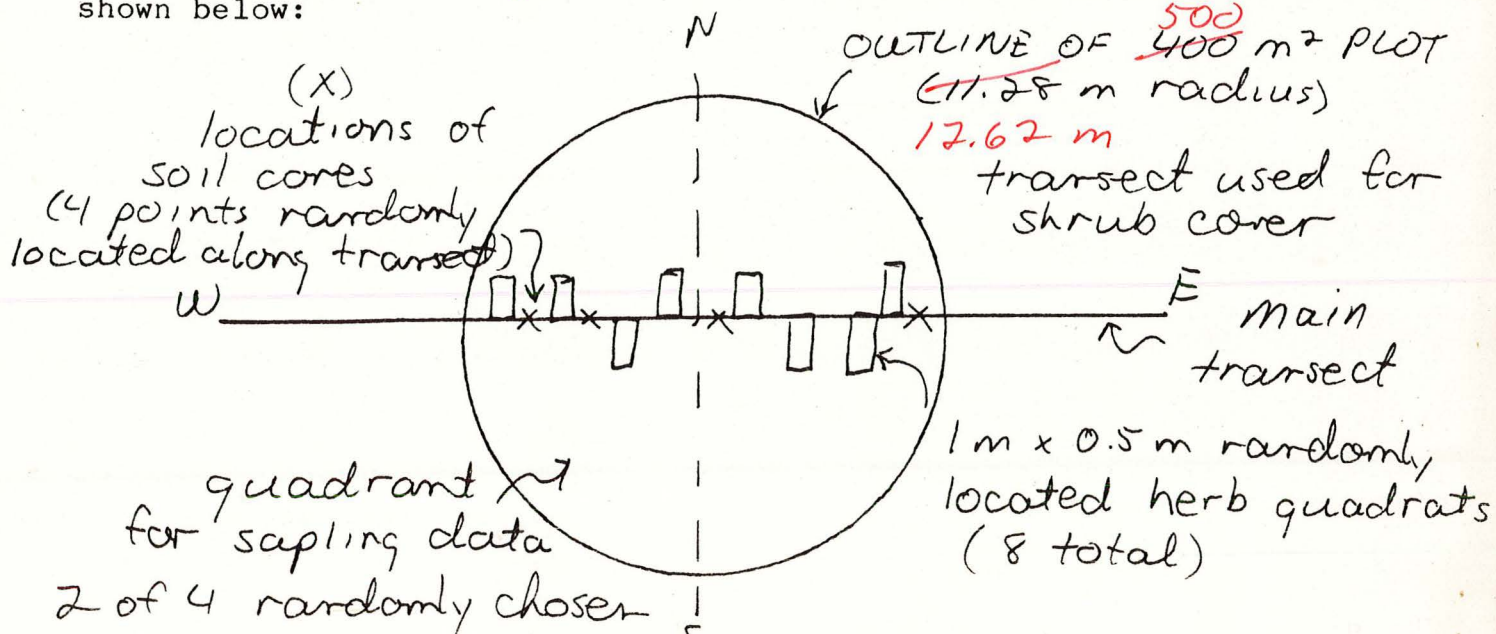 shown below:
N
500
OUTLINE OF 400 m² PLOT
(11.28 m radius)
12.62 m
transect used for
shrub cover
(X)
locations of
soil cores
(4 points randomly
located along transect)
W
E
main
transect
1m x 0.5m randomly
located herb quadrats
(8 total)
quadrant
for sapling data
2 of 4 randomly chosen
S